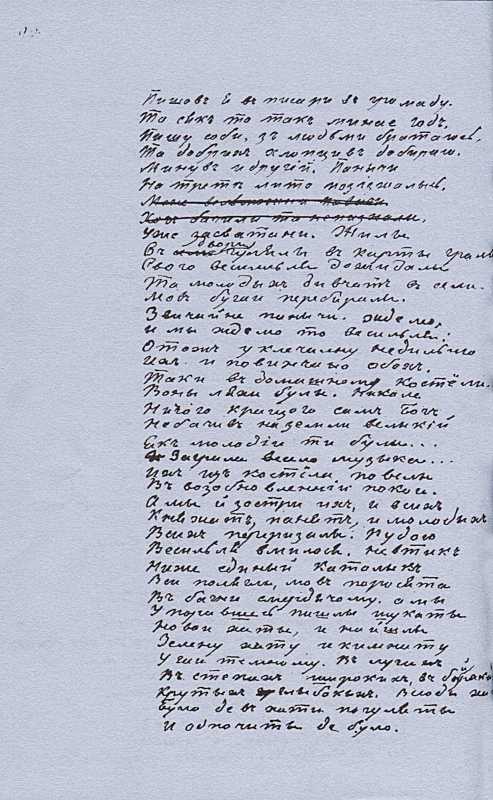 Пишовъ я въ писари въ громаду.
То сякъ то такъ минае годъ.
Пишу соби, зъ людьми братаюсь,
Та добрыхъ хлопцивъ добираю.
Минувъ и другій. Паныч
На трете лито поззъизжались,
Уже засватани. Жилы
Въ двори гуляли въ карты грали
Свого весильля дожидали
Та молодыхъ дивчатъ въ сели
Мовъ бугаи перебирали.
Звичайне паничи. Ждемо,
и мы ждемо то весильля.
Отожъ у клечальну недилю
Ихъ и повинчано обохъ.
Таки въ домашнему костёли.
Воны ляхи булы. Николы
Ничого кращого самъ Богъ
Не бачивъ на земли великій
Якъ молодіи ти булы...
Заграла весело музыка...
Ихъ изъ костёла повелы
Въ возобновленніи покои.
А мы й зострили ихъ, и всихъ
Княжатъ, панятъ, и молодыхъ
Всихъ перерізали. Рудою
Весильля вмылося. Не втикъ
Ниже єдиный католыкъ
Вси полягли, мовъ поросята
Въ багни смердячому. а мы
Упоравшись пишлы шукаты
Новои хаты, и найшлы
Зелену хату и кимнату
У гаи темному. Въ лугахъ
Въ степахъ широкихъ, въ байракахъ
Крутыхъ глыбокихъ. Всюды хата
Було де въ хати погуляты
И одпочиты де було.